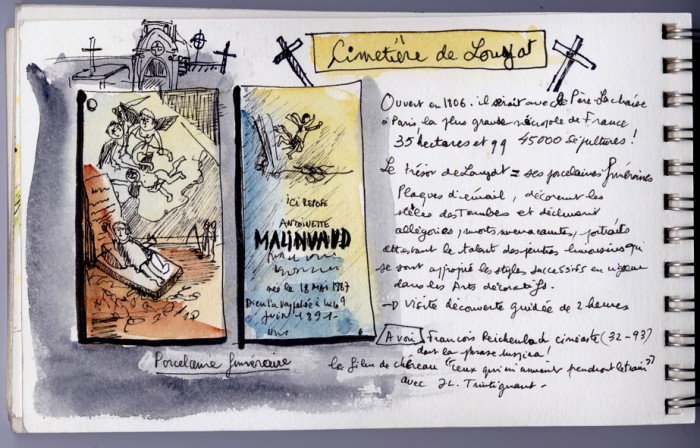 Cimetière de Louyat
Ouvert en 1806. il serait avec le Père-Lachaise
à Paris la plus grande nécropole de France
35 hectares et qq 45000 sépultures !
Le trésor de Louyat = ses porcelaines funéraires
Plaques d'émail, décorent les
stèles des Tombes et déclinent
allégories, morts, portraits
attestant le talent des peintres limousins qui
se sont approprié les styles successifs en vigueur
dans les Arts décoratifs.
→ Visite découverte guidée de 2 heures
A voir François Reichenbach cinéaste (32-93)
dont la phrase inspira !
le film de chéreau "Ceux qui m'aiment prendront le train"
avec JL. Trintignant -
ICI REPOSE
ANTOINETTE
MALINVAUD
née le 18 MAI 1887
Dieu l'a rappelée à lui le 9
juin 1891-
Porcelaine funéraire